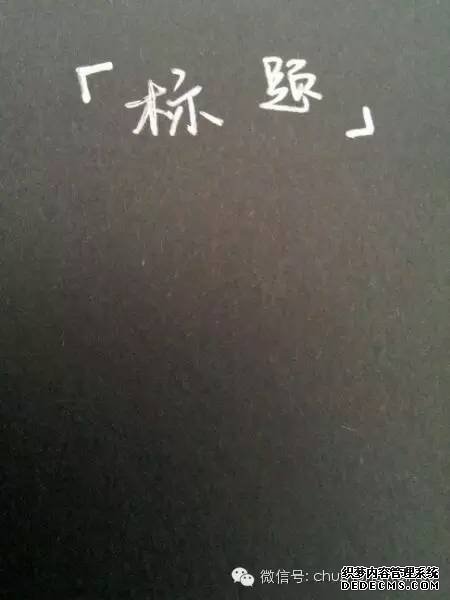 「标题」
微信号: chu
织梦内容管理系统
DEDECMS.COM